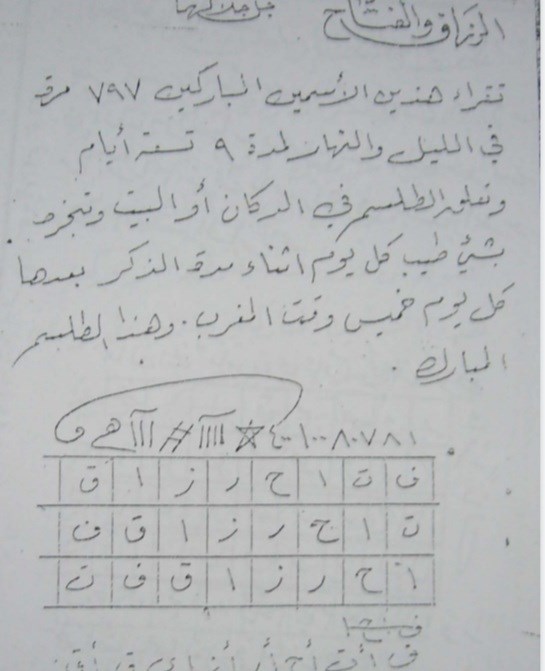 الرزاق والفتاح جل جلالهما
تقراء هذين الأسمين المباركين ٧٩٧ مرة
في الليل والنهار لمدة ٩ تسعة أيام
وتعلق الطلسم في الدكان أو البيت وتبخره
بشئ طيب كل يوم اثناء مدة الذكر بعدها
كل يوم خميس وقت المغرب. وهذا الطلسم
المبارك.
ف ت ا ح ر ز ا ق
ت ا ح ر ز ا ق ف
ا ح ر ز ا ق ف ت